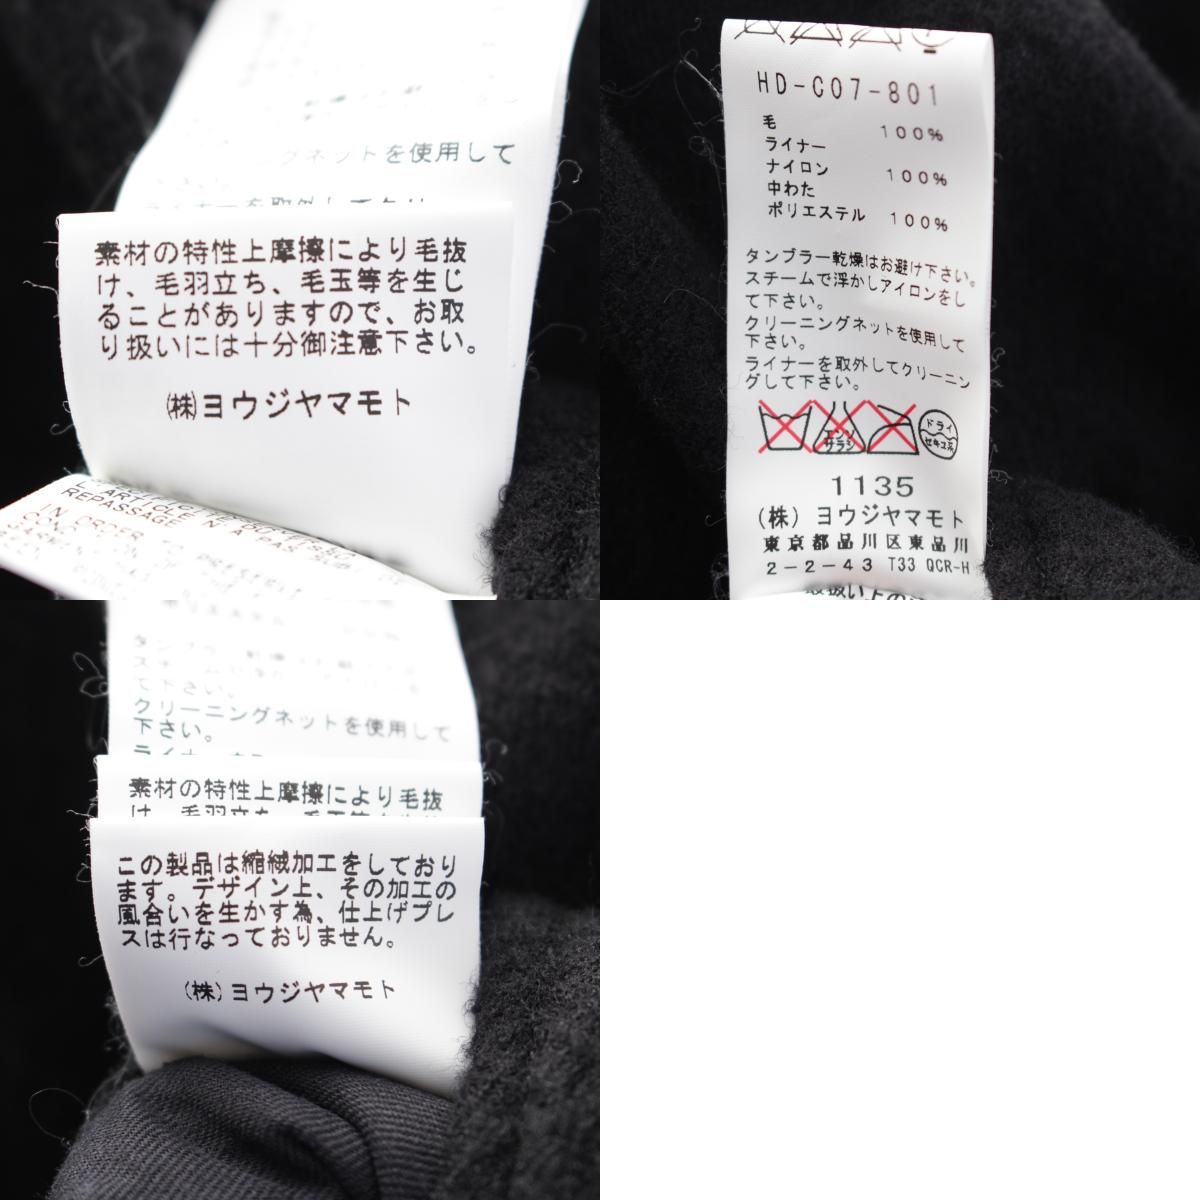 グネットを使用して
素材の特性上摩擦により毛抜
け、毛羽立ち、毛玉等を生じ
ることがありますので、お取
り扱いには十分御注意下さい。
㈱ヨウジヤマモト
L'ARTICLE N'A PAS
REPASSAGE
IN ORDER TO
HD-C07-801
毛 100%
ライナー
ナイロン 100%
中わた
ポリエステル 100%
タンブラー乾燥はお避け下さい。
スチームで浮かしアイロンをし
て下さい。
クリーニングネットを使用して
下さい。
ライナーを取外してクリーニン
グして下さい。
エンソ
サラシ
ドライ
セキユ系
1135
(株) ヨウジヤマモト
東京都品川区東品川
2-2-43 T33 QCR-H
取扱い上の
て下さい。
クリーニングネットを使用して
下さい。
素材の特性上摩擦により毛抜
け、毛羽立ち、毛玉等を生じ
この製品は縮絨加工をしており
ます。デザイン上、その加工の
風合いを生かす為、仕上げプレ
スは行なっておりません。
(株)ヨウジヤマモト